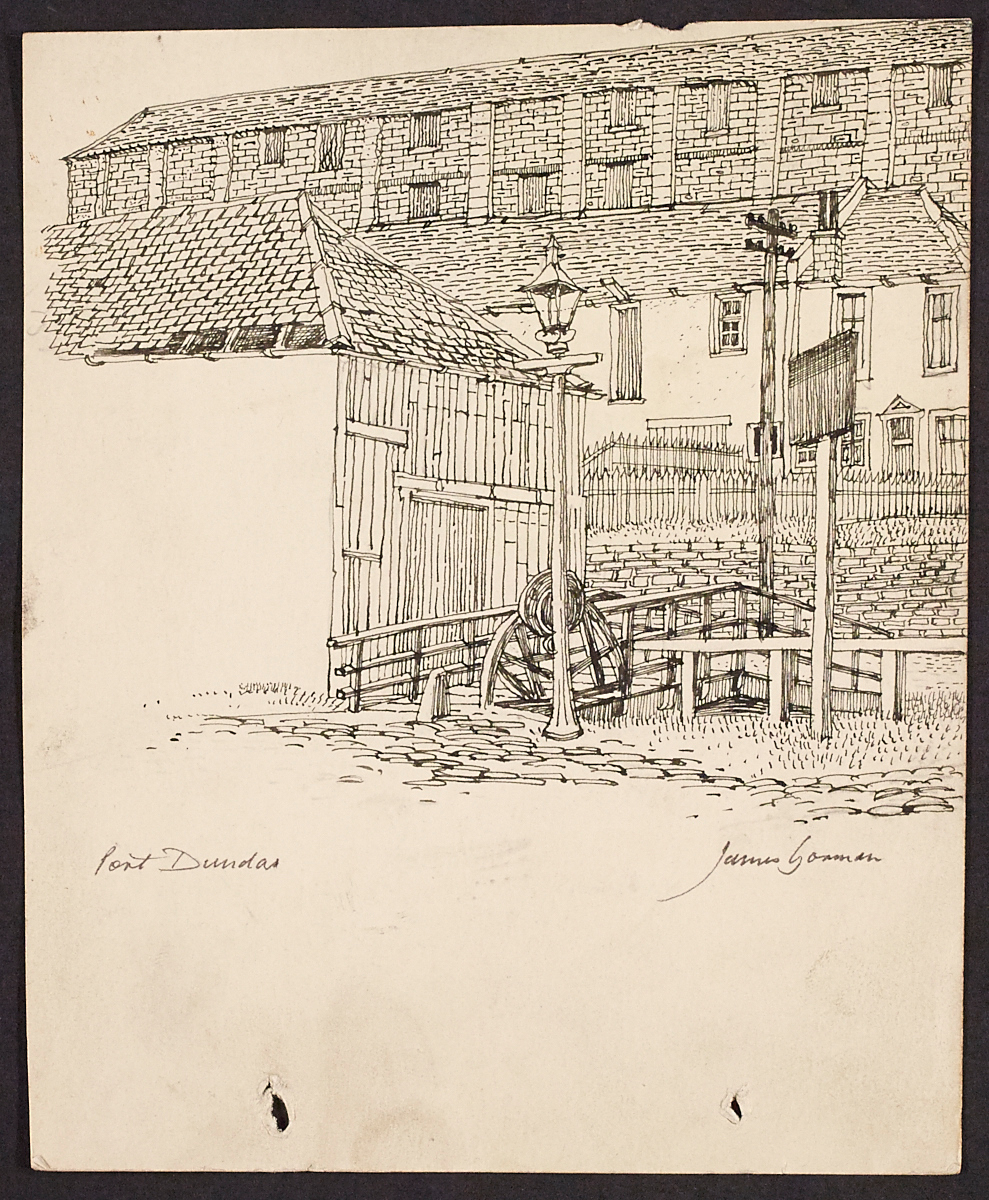 Port Dundas
James Gorman